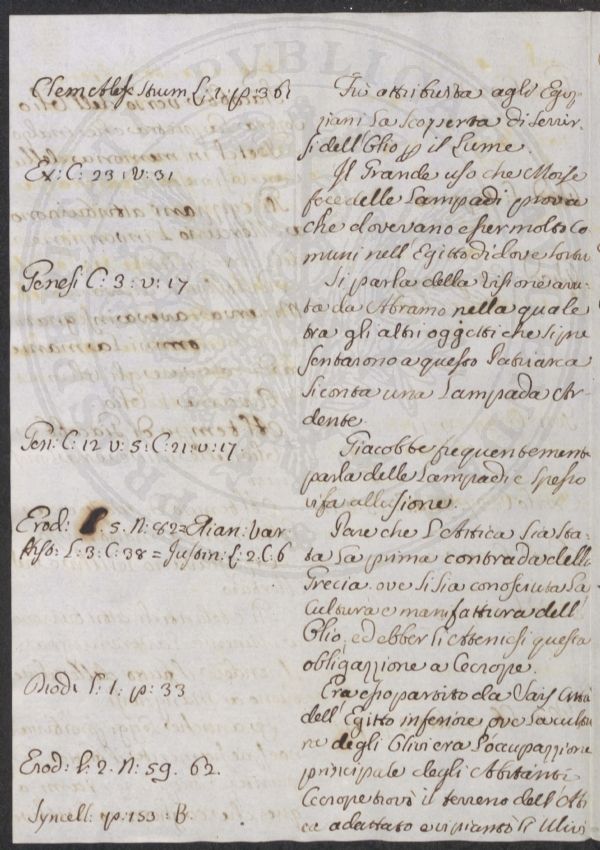 Clem: Ales: Strum L: 1: p: 361
Ex: C: 23: V: 31
Genesi C: 3: v: 17
Gen: C: 12 v: 5: C: 21: v: 17.
Erod: l. 5. N: 82 = Elian: Var
Hist: L: 3. C: 38 = Justin: L: 2. C: 6
Diod: l: 1. p: 33
Erod: l: 2. N: 59. 62.
Syncell: p: 153: B.
Fù attribuita agli Egiz-
ziani La Scoperta di Servir-
si dell'Oglio p il Lume.
Il Grande uso che Moise
fece delle Lampadi prova
che dovevano esser molto Co-
muni nell'Egitto di dove sortiva
Si parla della Visione avu-
ta da Abramo nella quale
tra gli altri oggetti che si pre
sentarono a questo Patriarca
Si conta una Lampada Ar-
dente.
Giacobbe frequentemente
parla delle Lampadi e Spesso
vi fa allusione.
Pare che L'Attica Sia Sta-
ta La prima contrada della
Grecia ove si sia conosciuta La
Cultura e manifattura dell'
Oglio, ed ebber li Ateniesi questa
obligazzione a Cecrope.
Era esso partito da Sais Città
dell'Egitto inferiore ove La cultu-
ra degli Olivi era l'occupazzione
principale degli Abitanti
Cecrope trovò il terreno dell'At-
ica adattato e vi piantò li Ulivi